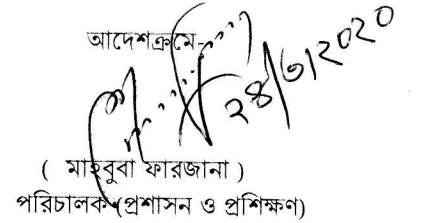 আদেশক্রমে-
২৪/৬/২০২০
( মাহবুবা ফারজানা )
পরিচালক (প্রশাসন ও প্রশিক্ষণ)